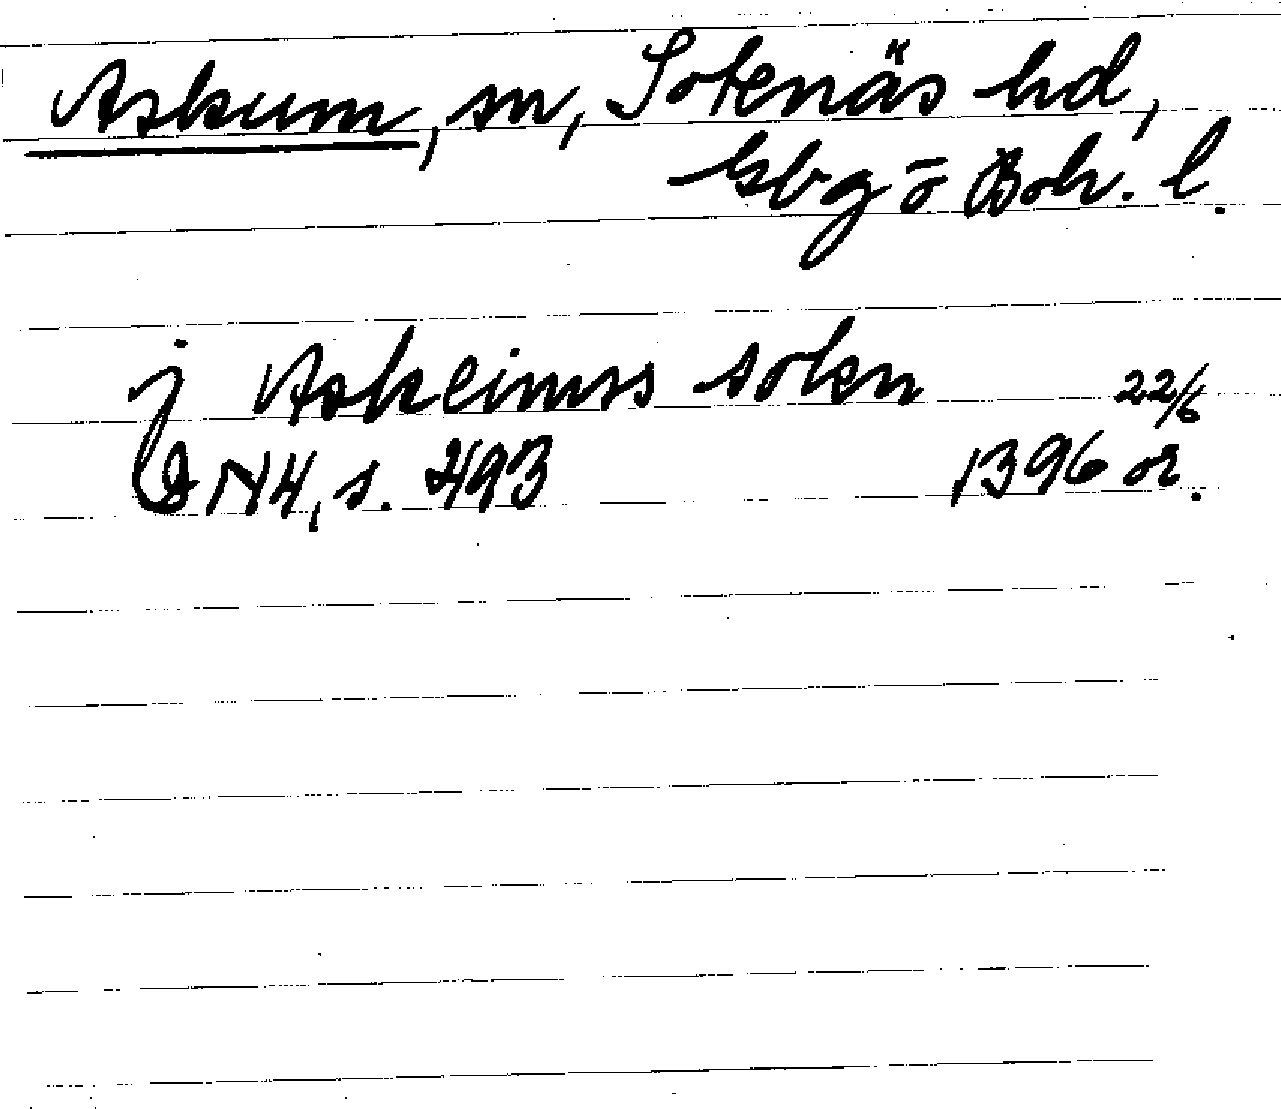 Askum, sn, Sotenäs hd,
Gbg o Boh. l.
j Askeimss sokn 22/6
DN 4, s. 493 1396 or.